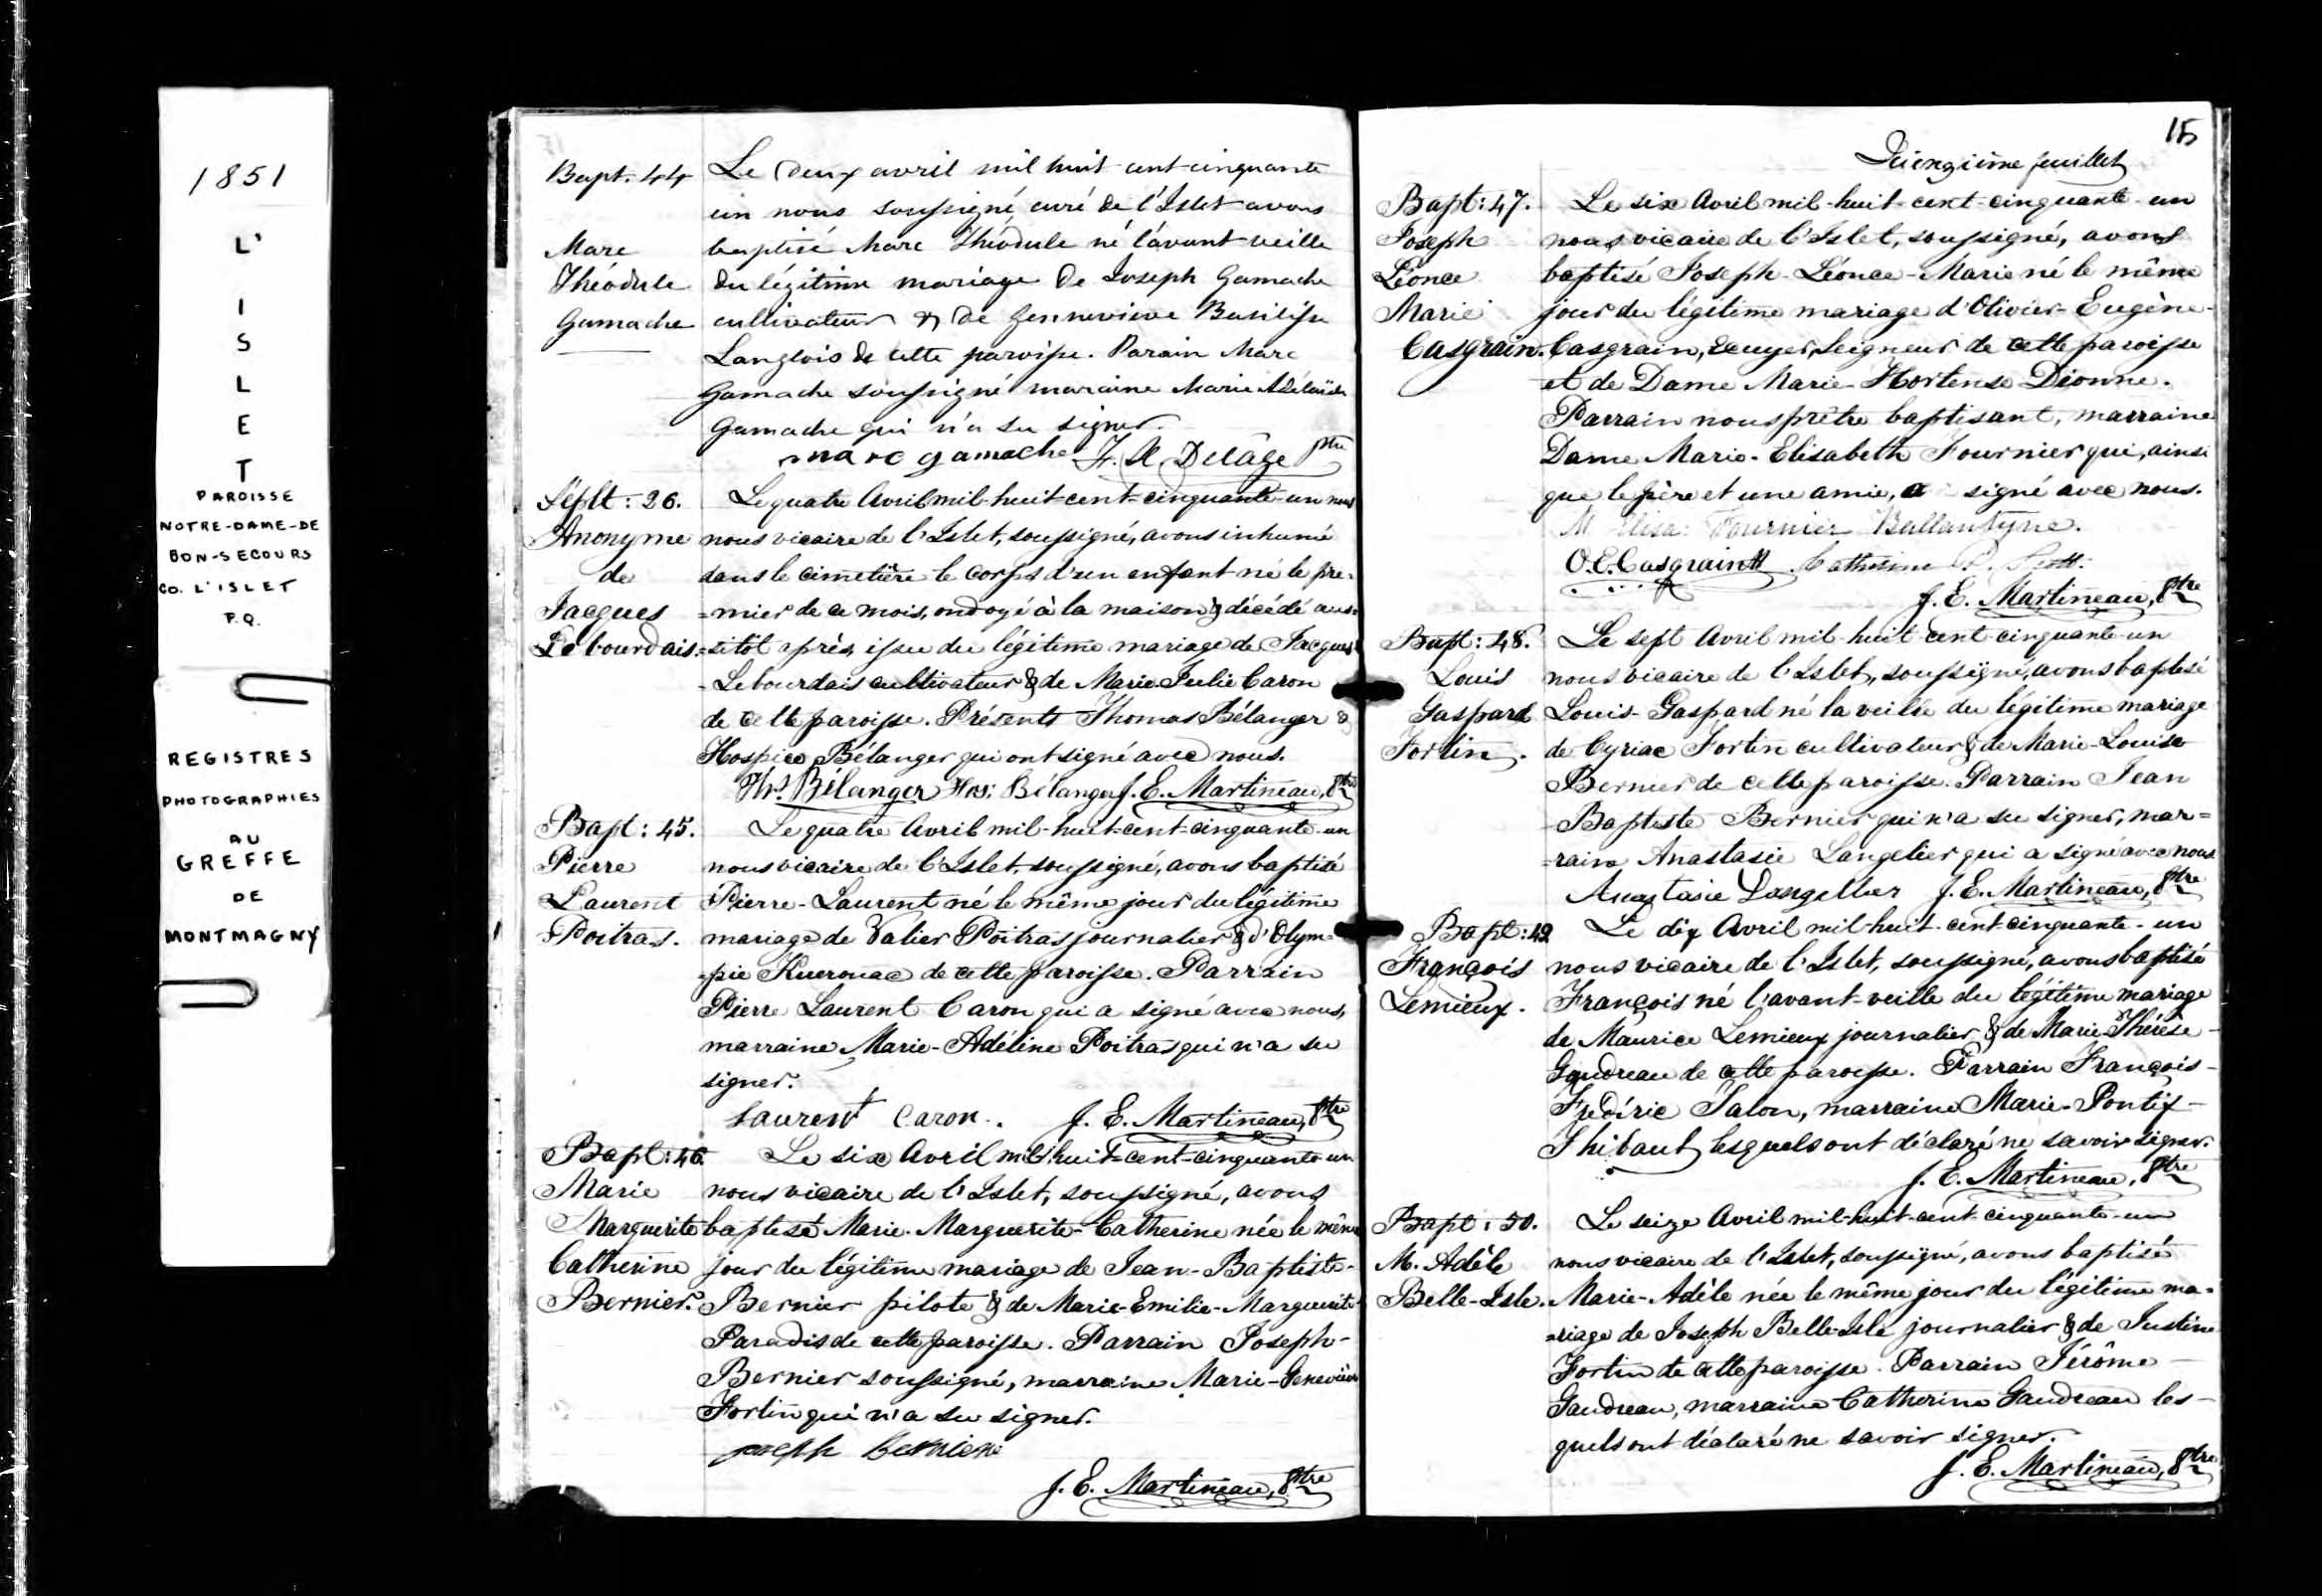 1851
L'
I
S
L
E
T
PAROISSE
NOTRE-DAME-DE
BON-SECOURS
CO. L'ISLET
P.Q.
REGISTRES
PHOTOGRAPHIES
AU
GREFFE
DE
MONTMAGNY
Bapt. 44
Marc
Théodule
Gamache
Le deux avril mil huit cent cinquante
un nous soussigné, curé de l'Islet avons
baptisé Marc Théodule né l'avant veille
du légitime mariage de Joseph Gamache
cultivateur & de Gennevieve Basilisse
Langlois de cette paroisse. Parain Marc
Gamache soussigné maraine Marie Adélaïde
Gamache qui n'a su signer.
marc gamache F. X. Delâge ptre
Sépult: 26.
Anonyme
de
Jacques
Lebourdais.
Le quatre Avril mil-huit-cent-cinquante-un nous
nous vicaire de l'Islet, soussigné, avons inhumé
dans le cimetière le corps d'un enfant né le pre-
=mier de ce mois, ondoyé à la maison & décédé aus=
=sitôt après, issu du légitime mariage de Jacques
-Lebourdais cultivateur & de Marie Julie Caron
de cette paroisse. Présents Thomas Bélanger &
Hospice Bélanger qui ont signé avec nous.
Ths. Bélanger Hos: Bélanger J. E. Martineau, Ptre
Bapt: 45.
Pierre
Laurent
Poitras.
Le quatre Avril mil-huit-cent-cinquante-un
nous vicaire de l'Islet, soussigné, avons baptisé
Pierre-Laurent né le même jour du légitime
mariage de Valier Poitras journalier & d'Olym=
=pie Kuerouac de cette paroisse. Parrain
Pierre Laurent Caron qui a signé avec nous,
marraine Marie-Adéline Poitras qui n'a su
signer.
Laurent Caron. J. E. Martineau, Ptre
Bapt: 46.
Marie
Marguerite
Catherine
Bernier.
Le six Avril mil-huit-cent-cinquante-un
nous vicaire de l'Islet, soussigné, avons
baptisé Marie-Marguerite-Catherine née le même
jour du légitime mariage de Jean-Baptiste-
Bernier pilote & de Marie-Emilie-Marguerite
Paradis de cette paroisse. Parrain Joseph-
Bernier soussigné, marraine Marie-Geneviève
Fortin qui n'a su signer.
joseph Bernier
J. E. Martineau, Ptre
15
feuillet
Bapt: 47.
Joseph
Léonce
Marie
Casgrain.
Le six Avril mil-huit-cent-cinquante-un
nous vicaire de l'Islet, soussigné, avons
baptisé Joseph-Léonce-Marie né le même
jour du légitime mariage d'Olivier-Eugène-
Casgrain, Ecuyer, Seigneur de cette paroisse
et de Dame Marie-Hortense Dionne.
Parrain nous prêtre baptisant, marraine
Dame Marie-Elisabeth Fournier qui, ainsi
que le père et une amie, a signé avec nous.
M Elisa: Fournier Ballantyne.
O. E. Casgrain Catherine P.
J. E. Martineau, Ptre
Bapt: 48.
Louis
Gaspard
Fortin.
Le sept Avril mil-huit-cent-cinquante-un
nous vicaire de l'Islet, soussigné, avons baptisé
Louis-Gaspard né la veille du légitime mariage
de Cyriac Fortin cultivateur & de Marie-Louise
Bernier de cette paroisse. Parrain Jean
-Baptiste Bernier qui n'a su signer, mar=
=raine Anastasie Langelier qui a signé avec nous
Anastasie Langellier J. E. Martineau, Ptre
Bapt: 49
François
Lemieux.
Le dix Avril mil-huit-cent-cinquante-un
nous vicaire de l'Islet, soussigné, avons baptisé
François né l'avant-veille du légitime mariage
de Maurice Lemieux journalier & de Marie Thérèse-
Gaudreau de cette paroisse. Parrain François-
Frédéric Talon, marraine Marie-Pontif-
Thibault lesquels ont déclaré ne savoir signer.
J. E. Martineau, Ptre
Bapt: 50.
M. Adèle
Belle-Isle.
Le seize Avril mil-huit-cent-cinquante-un
nous vicaire de l'Islet, soussigné, avons baptisé
Marie-Adèle née le même jour du légitime ma-
=riage de Joseph Belle-Isle journalier & de Justine
Fortin de cette paroisse. Parrain Jérôme-
Gaudreau, marraine Catherine Gaudreau les-
quels ont déclaré ne savoir signer.
J. E. Martineau, Ptre